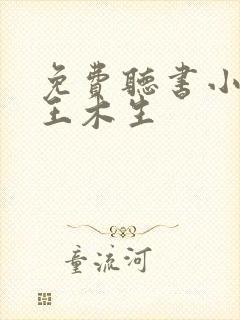 免費聽書小
王木生
童流河